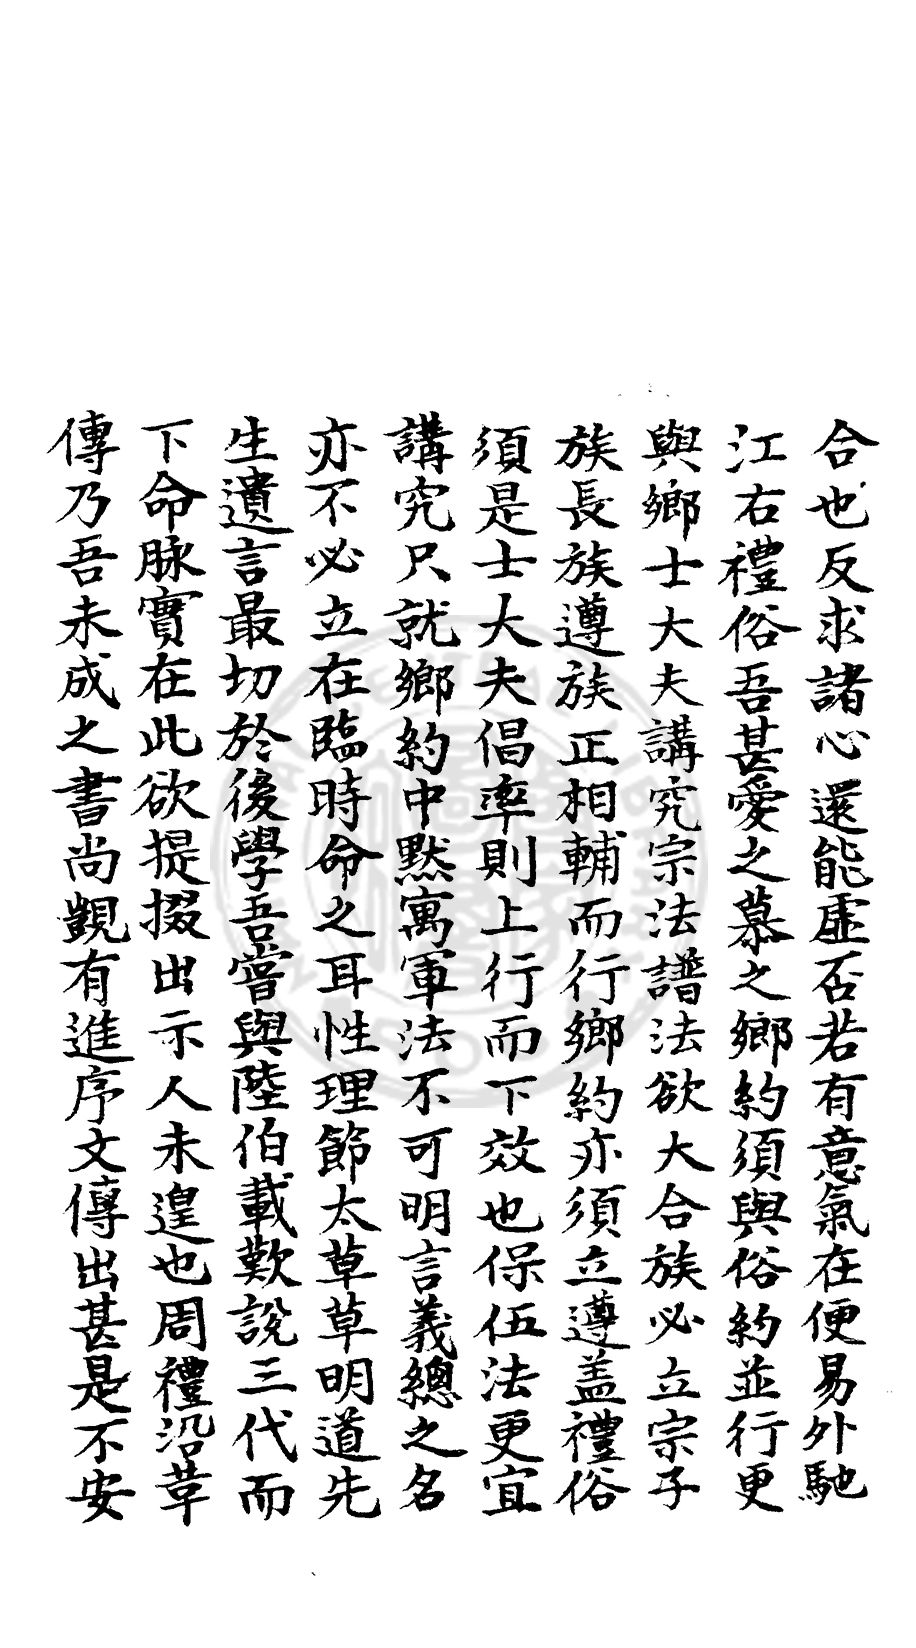 合也反求諸心還能虛否若有意氣在便易外馳
江右禮俗吾甚愛之慕之鄉約須與俗約並行更
與鄉士大夫講究宗法譜法欲大合族必立宗子
族長族遵族正相輔而行鄉約亦須立遵盖禮俗
須是士大夫倡率則上行而下效也保伍法更宜
講究只就鄉約中默寓軍法不可明言義總之名
亦不必立在臨時命之耳性理節太草草明道先
生遺言最切於後學吾嘗與陸伯載歎說三代而
下命脉實在此欲提掇出示人未遑也周禮沿革
傳乃吾未成之書尚覬有進序文傳出甚是不安